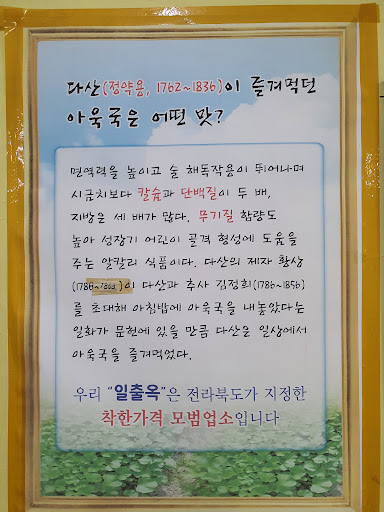 다산(정약용, 1762~1836)이 즐겨먹던
아욱국은 어떤 맛?
면역력을 높이고 술 해독작용이 뛰어나며
시금치보다 칼슘과 단백질이 두 배,
지방은 세 배가 많다. 무기질 함량도
높아 성장기 어린이 골격 형성에 도움을
주는 알칼리 식품이다. 다산의 제자 황상
이 다산과 추사 김정희(1786~1856)
를 초대해 아침밥에 아욱국을 내놓았다는
일화가 문헌에 있을 만큼 다산은 일상에서
아욱국을 즐겨먹었다.
우리 "일출옥"은 전라북도가 지정한
착한가격 모범업소입니다